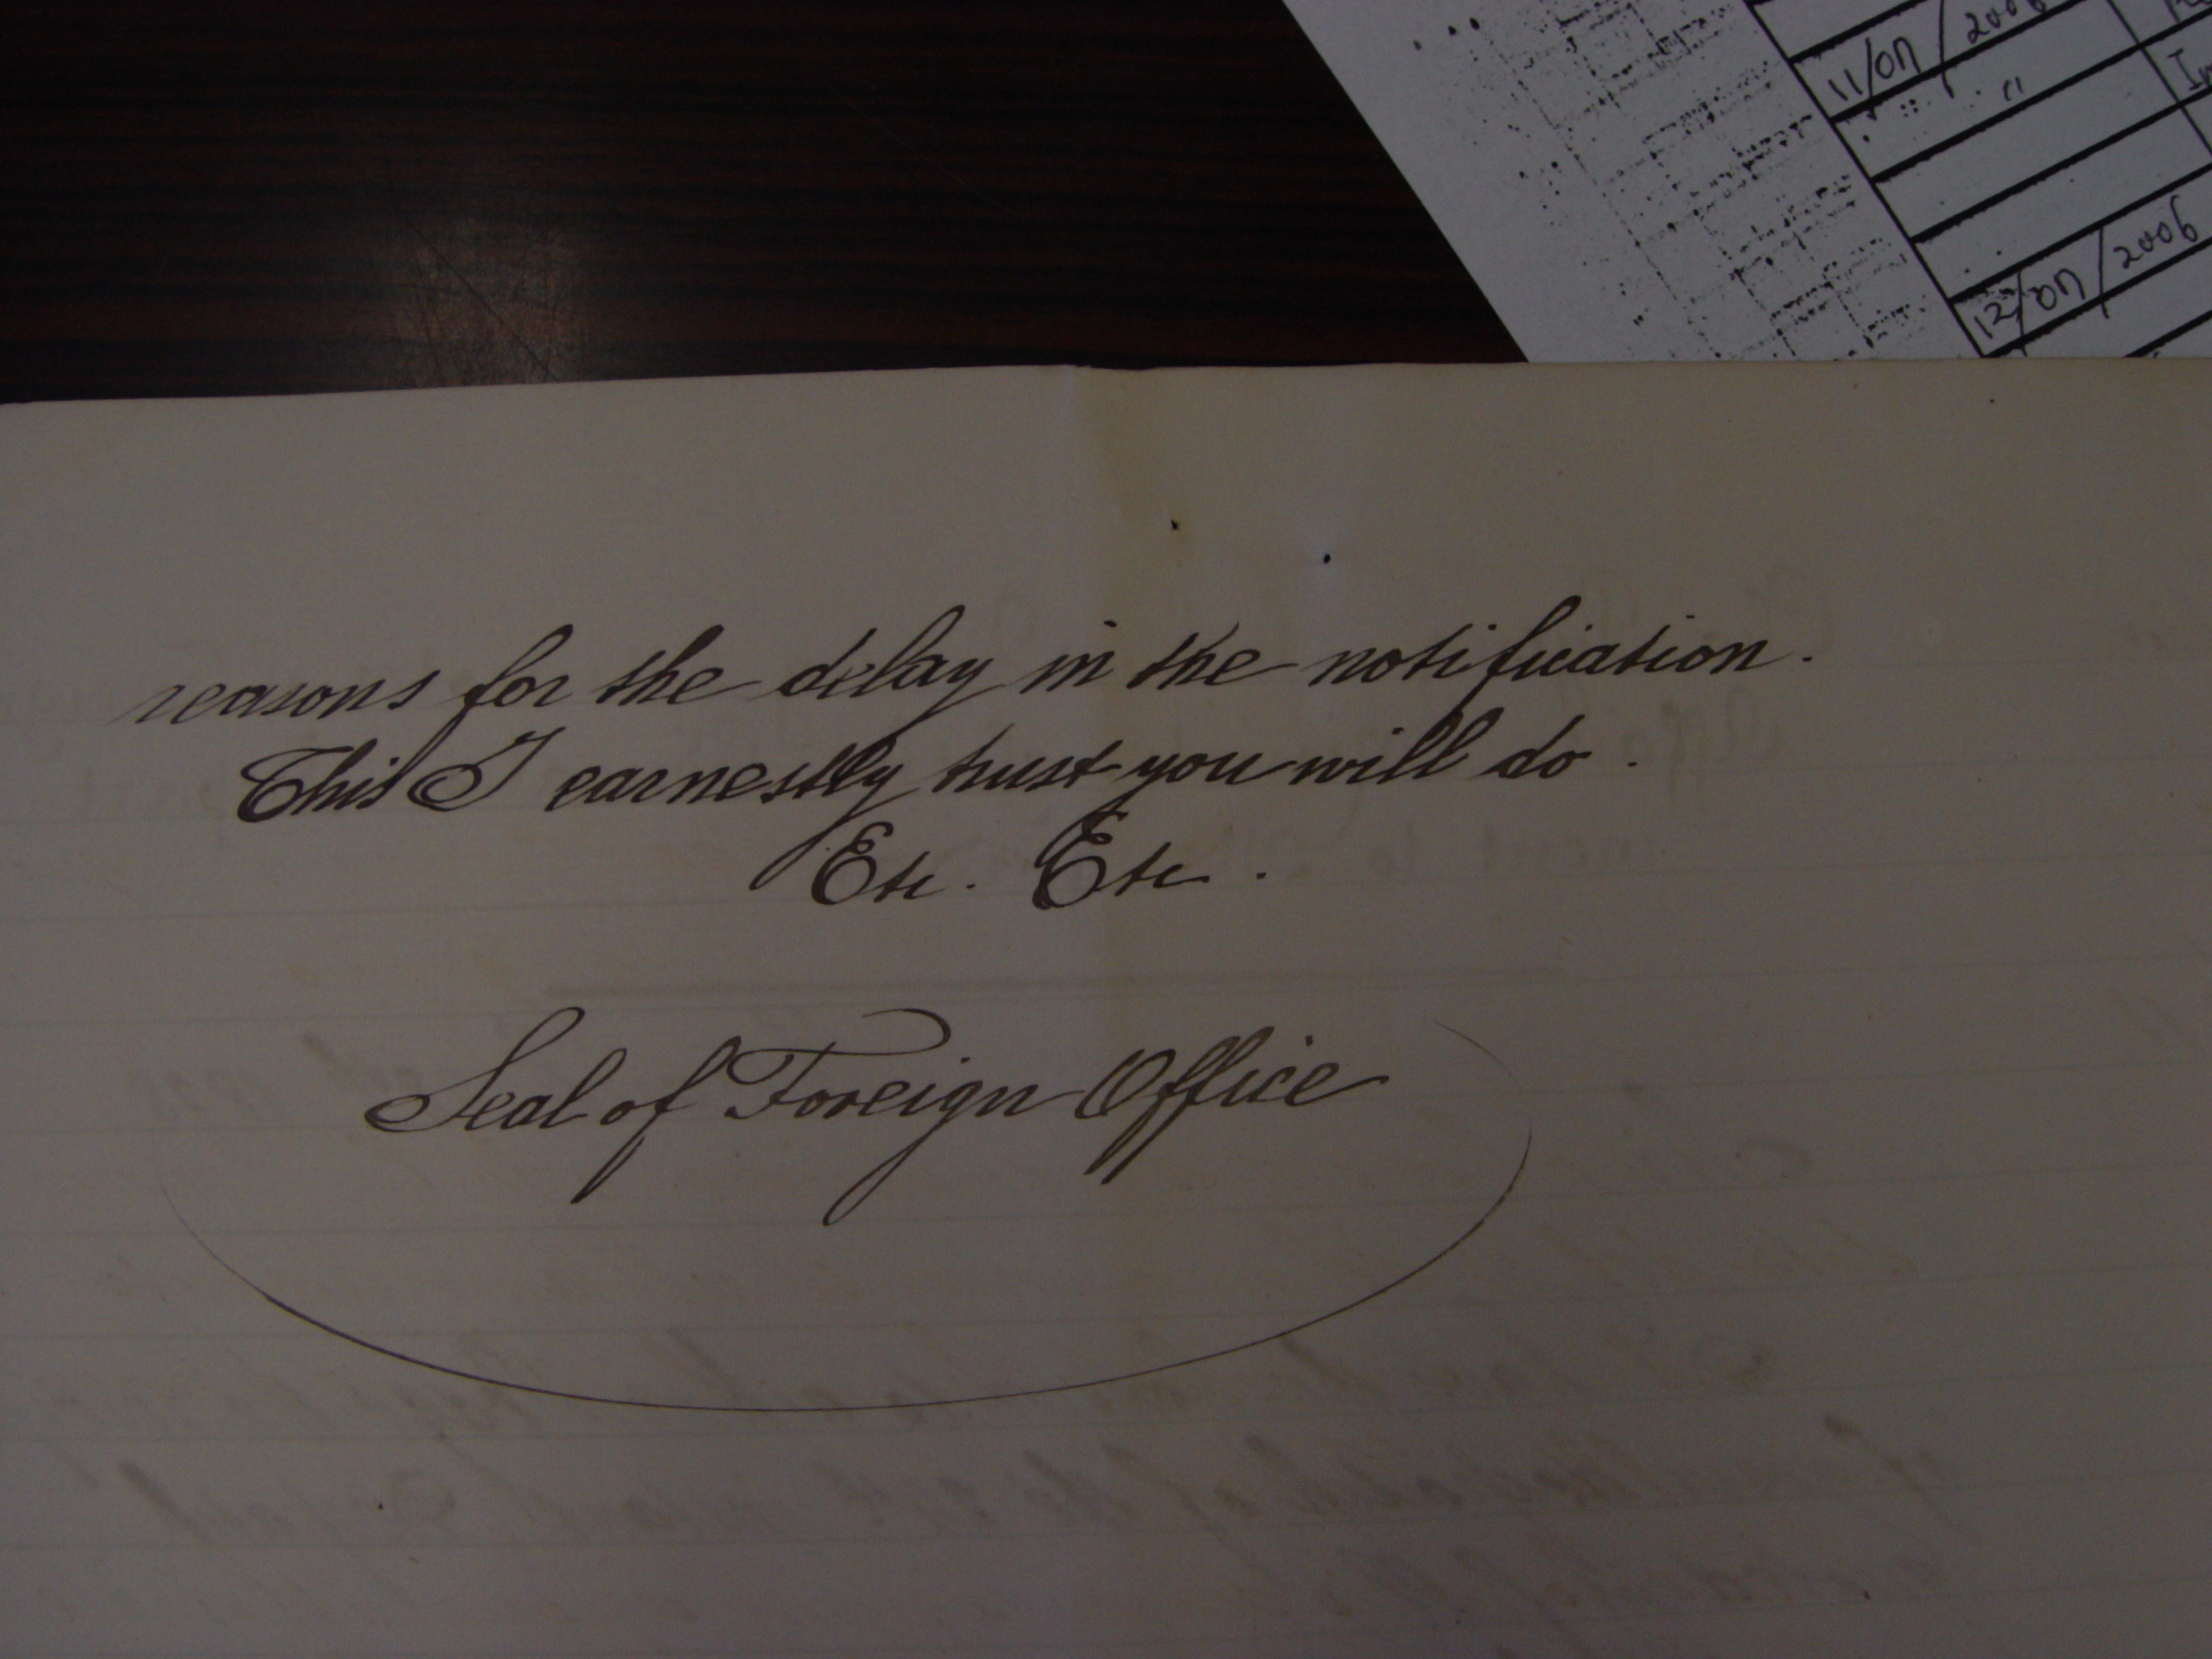 11/07/2006
"
12/07/2006
reasons for the delay in the notification.
This I earnestly trust you will do.
Etc. Etc.
Seal of Foreign Office